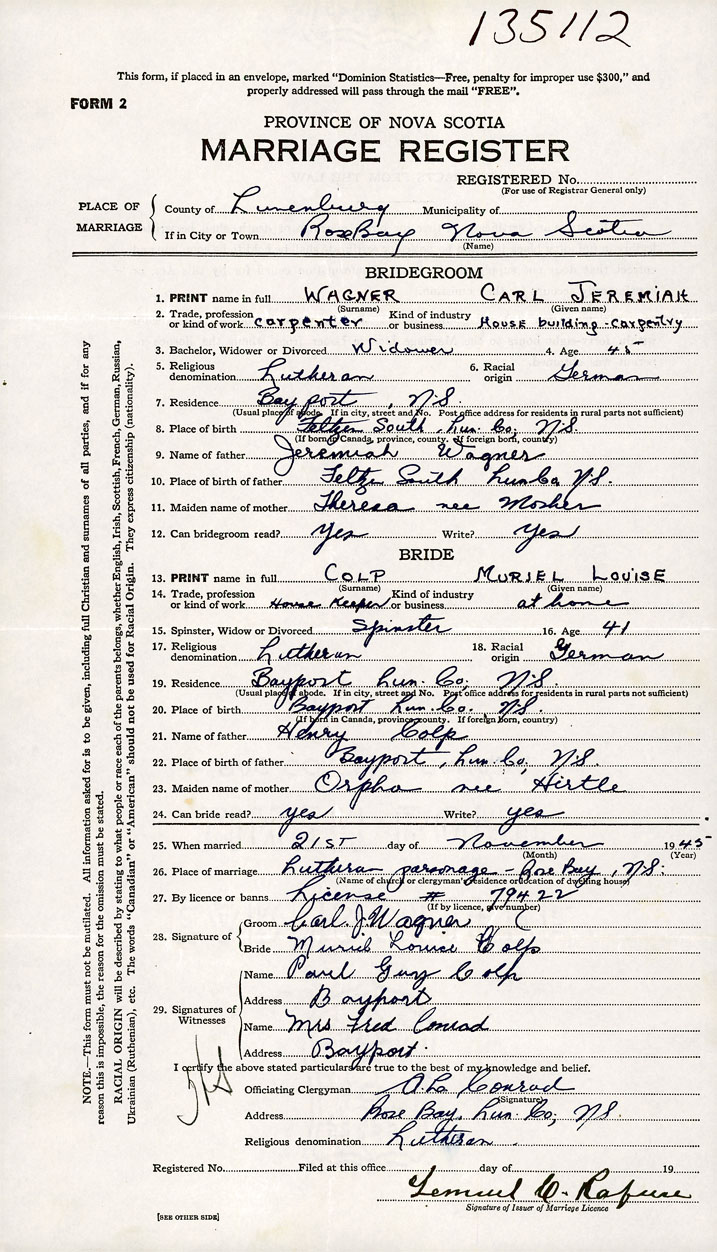 135112
This form, if placed in an envelope, marked "Dominion Statistics—Free, penalty for improper use $300," and
properly addressed will pass through the mail "FREE".
FORM 2
PROVINCE OF NOVA SCOTIA
MARRIAGE REGISTER
REGISTERED No.
(For use of Registrar General only)
PLACE OF MARRIAGE
County of Lunenburg Municipality of
If in City or Town Rose Bay Nova Scotia
(Name)
BRIDEGROOM
1. PRINT name in full WAGNER CARL JEREMIAH
(Surname) (Given name)
2. Trade, profession or kind of work carpenter Kind of industry or business House building - carpentry
3. Bachelor, Widower or Divorced Widower 4. Age 45
5. Religious denomination Lutheran 6. Racial origin German
7. Residence Bayport, N.S.
(Usual place of abode. If in city, street and No. Post office address for residents in rural parts not sufficient)
8. Place of birth Feltzen South, Lun. Co; N.S.
(If born in Canada, province, county. If foreign born, country)
9. Name of father Jeremiah Wagner
10. Place of birth of father Feltz South Lun Co N.S.
11. Maiden name of mother Theresa nee Mosher
12. Can bridegroom read? Yes Write? Yes
BRIDE
13. PRINT name in full COLP MURIEL LOUISE
(Surname) (Given name)
14. Trade, profession or kind of work House Keeper Kind of industry or business at home
15. Spinster, Widow or Divorced Spinster 16. Age 41
17. Religious denomination Lutheran 18. Racial origin German
19. Residence Bayport Lun. Co; N.S.
(Usual place of abode. If in city, street and No. Post office address for residents in rural parts not sufficient)
20. Place of birth Bayport Lun. Co. N.S.
(If born in Canada, province, county. If foreign born, country)
21. Name of father Henry Colp
22. Place of birth of father Bayport, Lun. Co, N.S.
23. Maiden name of mother Orpha nee Hirtle
24. Can bride read? yes Write? yes
25. When married 21ST day of November 1945
(Month) (Year)
26. Place of marriage Lutheran parsonage - Rose Bay, N.S.
(Name of church or clergyman's residence or location of dwelling house)
27. By licence or banns License # 79422
(If by licence, give number)
28. Signature of
Groom Carl. J. Wagner
Bride Muriel Louise Colp
29. Signatures of Witnesses
Name Paul Guy Colp
Address Bayport
Name Mrs Fred Conrad
Address Bayport.
I certify the above stated particulars are true to the best of my knowledge and belief.
Officiating Clergyman Conrad
(Signature)
Address Rose Bay, Lun. Co; N.S.
Religious denomination Lutheran.
Registered No. Filed at this office day of 19
Lemuel Rafuse
Signature of Issuer of Marriage Licence
[SEE OTHER SIDE]
NOTE.—This form must not be mutilated. All information asked for is to be given, including full Christian and surnames of all parties, and if for any
reason this is impossible, the reason for the omission must be stated.
RACIAL ORIGIN will be described by stating to what people or race each of the parents belongs, whether English, Irish, Scottish, French, German, Russian,
Ukrainian (Ruthenian), etc. The words "Canadian" or "American" should not be used for Racial Origin. They express citizenship (nationality).